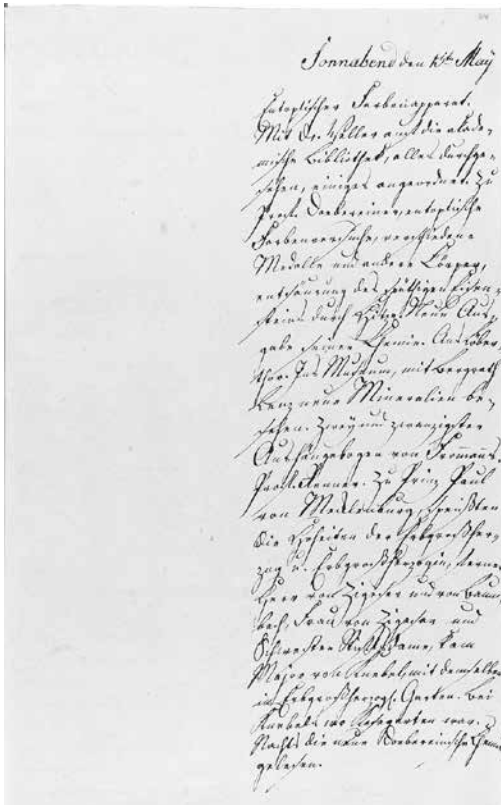 Sonnabend den 15ten May
Entoptischer Farbenapparat.
Mit Dr. Weller auf die akade-
mische Bibliothek, alles durchge-
sehen, einiges angeordnet. Zu
Prof. Doebereiner, entoptische
Farbenversuche, verschiedene
Metalle und andere Körper,
entsäurung des späthigen Eisen-
steins durch Hitze. Neue Aus-
gabe seiner Chemie. Ans Löber-
thor. Ins Museum, mit Bergrath
Lenz neue Mineralien be-
sehen. Zwey und zwanzigster
Aushängebogen von Frommann.
Prof. Renner. Zu Prinz Paul
von Mecklenburg, speißten
die Hoheiten der Erbgroßher-
zog u. Erbgroßherzogin, ferner
Herr von Ziegesar und von Baum-
bach. Frau von Ziegesar und
Schwester Stiftsdame, kam
Major von Knebel, mit demselben
in Erbgroßherzogl. Garten. Bei
Knebels wo Kosegarten war.
Nachts die neue Doebereinische Chemie
gelesen.